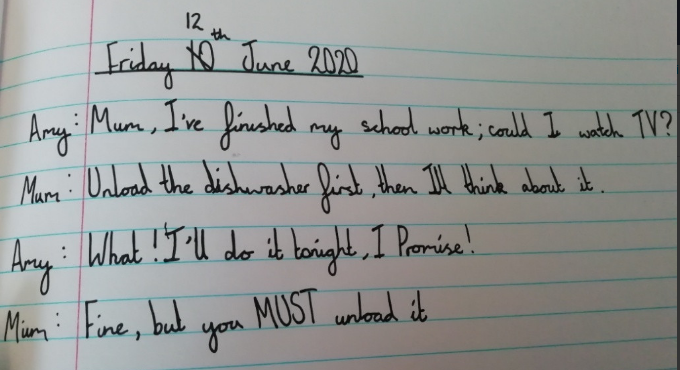 Friday 12th June 2020
Amy: Mum, I've finished my school work; could I watch TV?
Mum: Unload the dishwasher first, then I'll think about it.
Amy: What! I'll do it tonight, I Promise!
Mum: Fine, but you MUST unload it